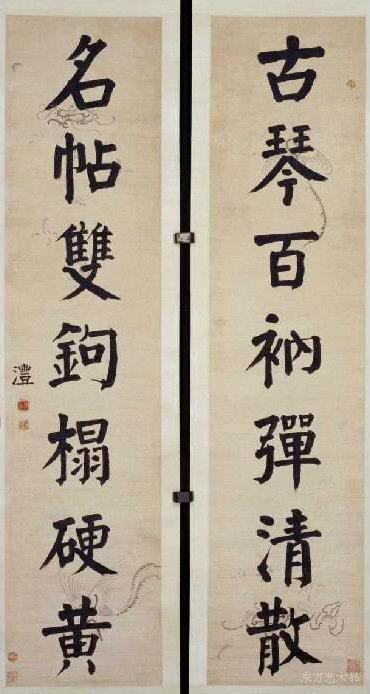 古琴百衲彈清散
名帖雙鉤榻硬黃
澧
东方艺术品